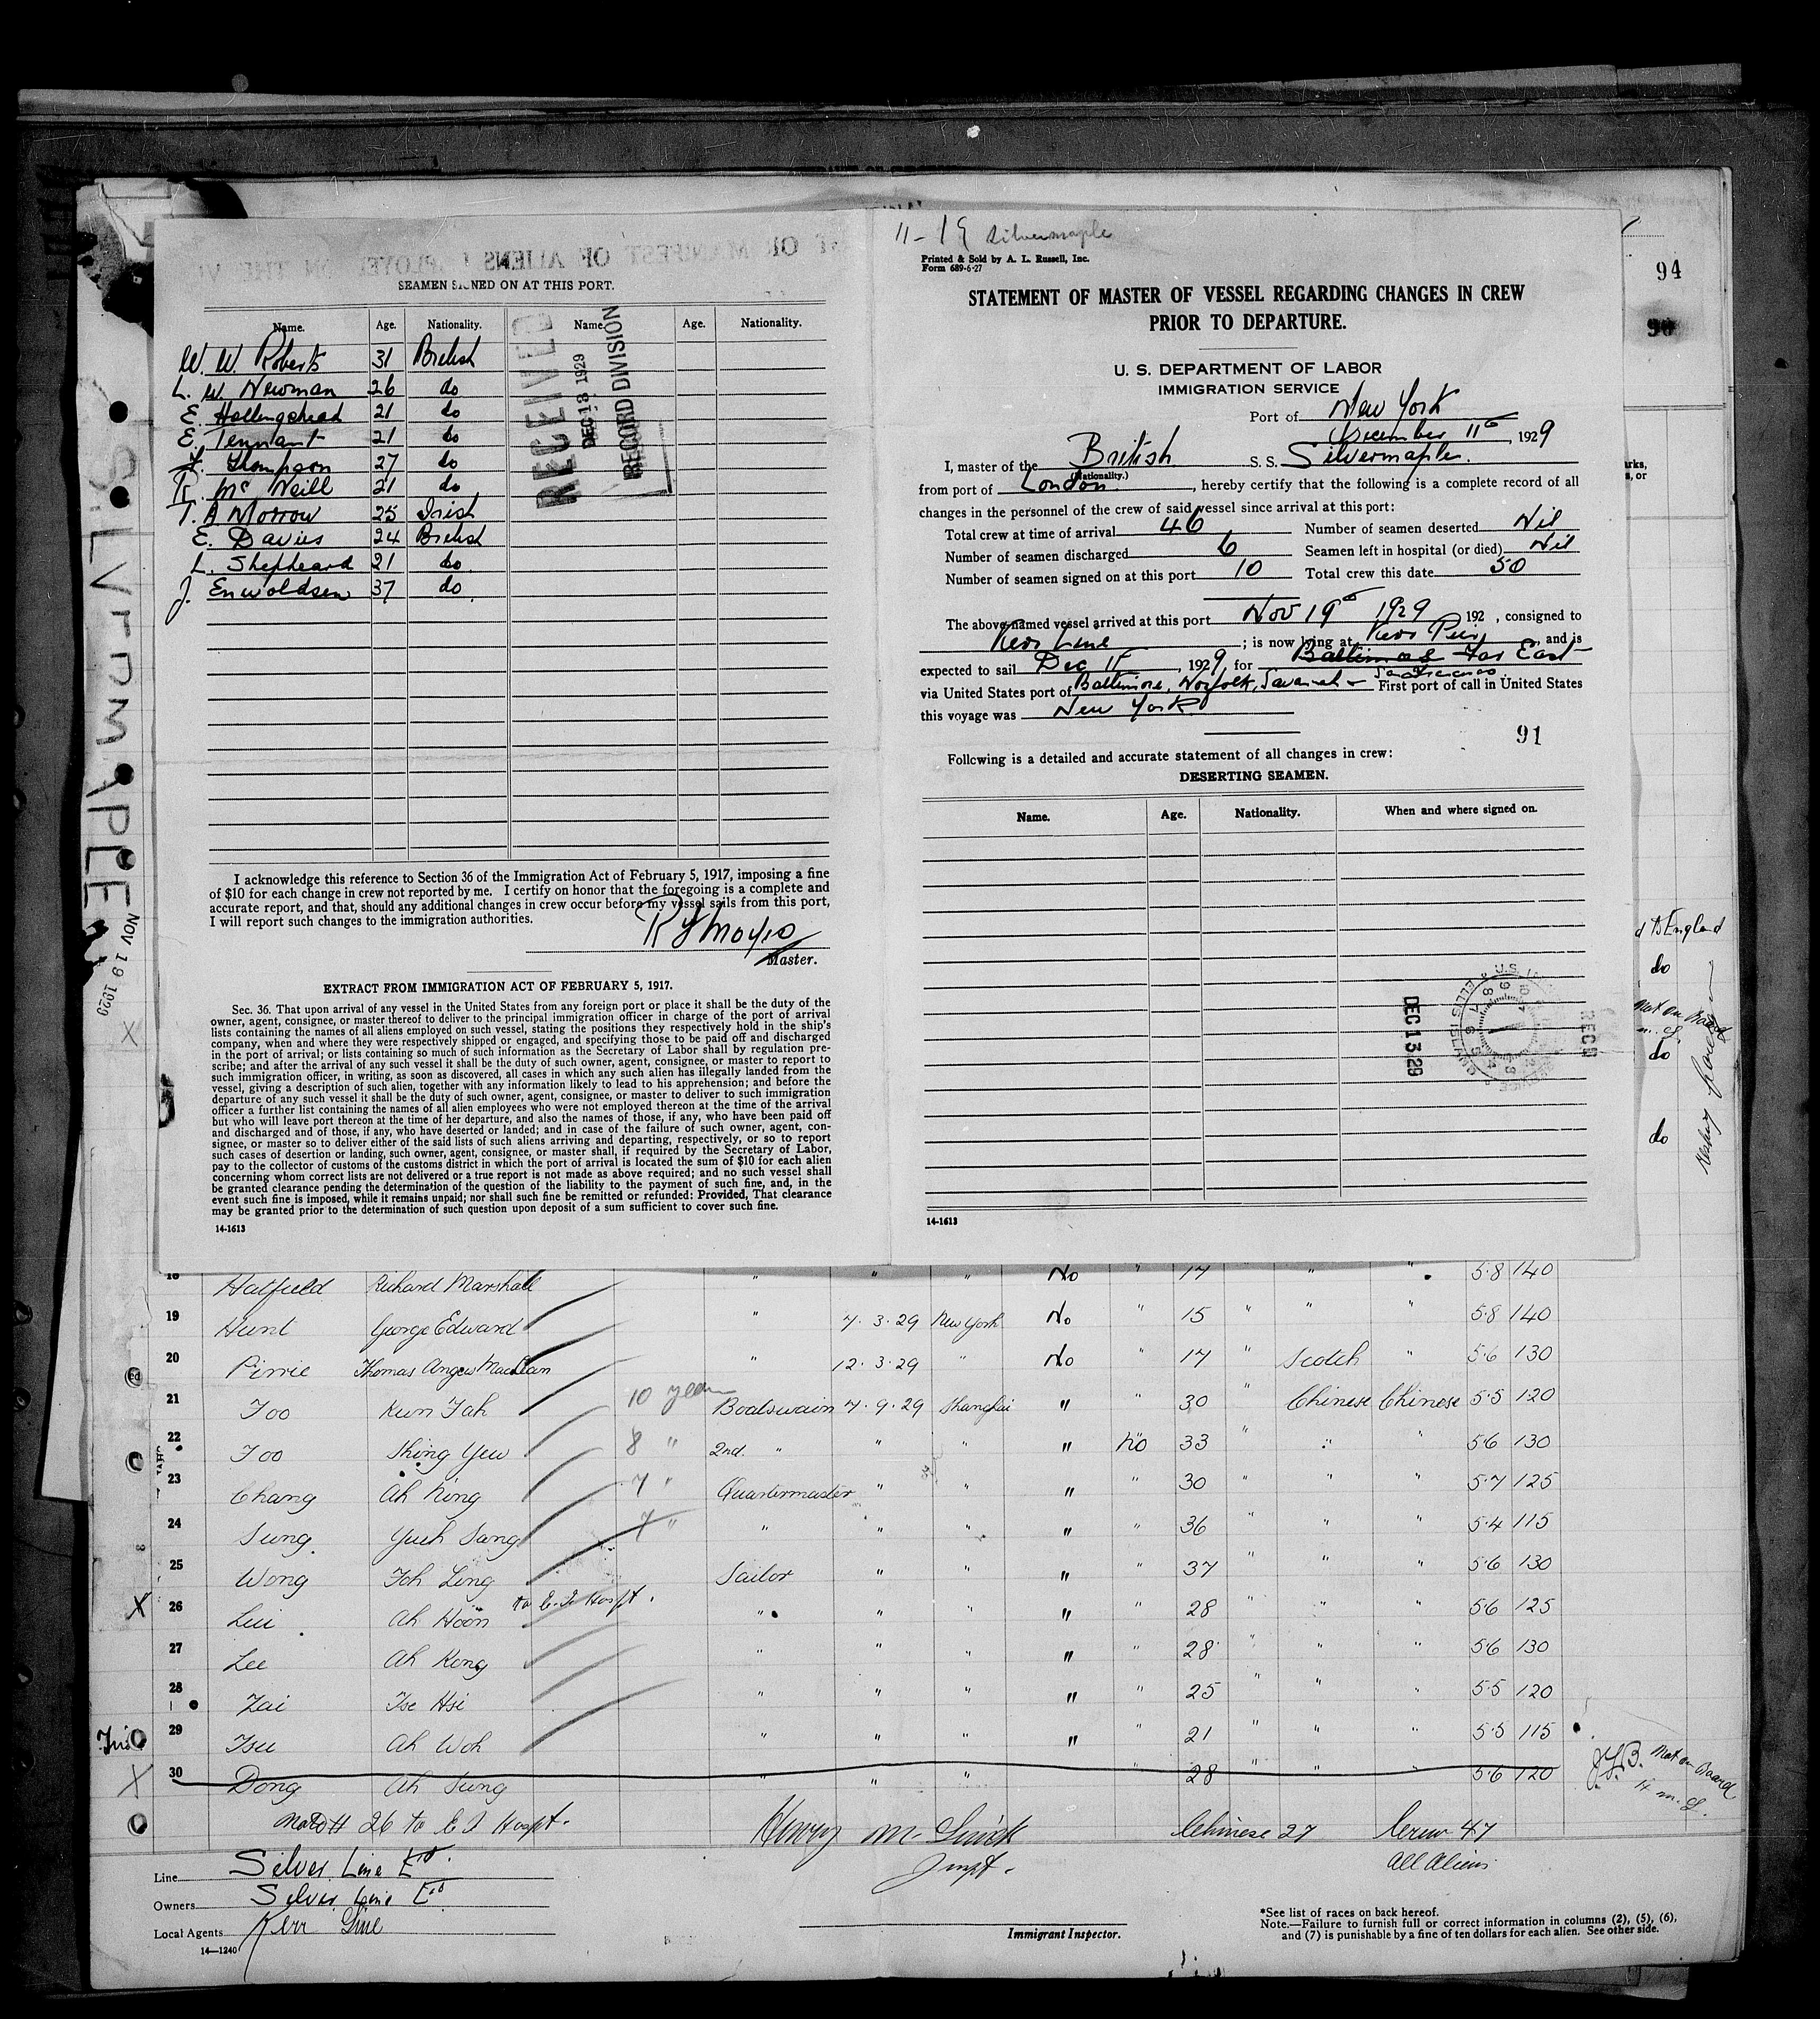 SEAMEN SIGNED ON AT THIS PORT.
Name. Age. Nationality. Name. Age. Nationality.
W. W. Roberts 31 British
L. W. Newman 26 do
E. Hollingshead 21 do
E. Tennant 21 do
Thompson 27 do
Mc Neill 21 do
T. A Morrow 25 Irish
E. Davies 24 British
L. Shepheard 21 do
J. Enwoldsen 37 do
RECEIVED
DEC 13 1929
RECORD DIVISION
I acknowledge this reference to Section 36 of the Immigration Act of February 5, 1917, imposing a fine
of $10 for each change in crew not reported by me. I certify on honor that the foregoing is a complete and
accurate report, and that, should any additional changes in crew occur before my vessel sails from this port,
I will report such changes to the immigration authorities.
Master.
EXTRACT FROM IMMIGRATION ACT OF FEBRUARY 5, 1917.
Sec. 36. That upon arrival of any vessel in the United States from any foreign port or place it shall be the duty of the
owner, agent, consignee, or master thereof to deliver to the principal immigration officer in charge of the port of arrival
lists containing the names of all aliens employed on such vessel, stating the positions they respectively hold in the ship's
company, when and where they were respectively shipped or engaged, and specifying those to be paid off and discharged
in the port of arrival; or lists containing so much of such information as the Secretary of Labor shall by regulation pre-
scribe; and after the arrival of any such vessel it shall be the duty of such owner, agent, consignee, or master to report to
such immigration officer, in writing, as soon as discovered, all cases in which any such alien has illegally landed from the
vessel, giving a description of such alien, together with any information likely to lead to his apprehension; and before the
departure of any such vessel it shall be the duty of such owner, agent, consignee, or master to deliver to such immigration
officer a further list containing the names of all alien employees who were not employed thereon at the time of the arrival
but who will leave port thereon at the time of her departure, and also the names of those, if any, who have been paid off
and discharged and of those, if any, who have deserted or landed; and in case of the failure of such owner, agent, con-
signee, or master so to deliver either of the said lists of such aliens arriving and departing, respectively, or so to report
such cases of desertion or landing, such owner, agent, consignee, or master shall, if required by the Secretary of Labor,
pay to the collector of customs of the customs district in which the port of arrival is located the sum of $10 for each alien
concerning whom correct lists are not delivered or a true report is not made as above required; and no such vessel shall
be granted clearance pending the determination of the question of the liability to the payment of such fine, and, in the
event such fine is imposed, while it remains unpaid; nor shall such fine be remitted or refunded: Provided, That clearance
may be granted prior to the determination of such question upon deposit of a sum sufficient to cover such fine.
14-1613
11-19 Silvermaple
Printed & Sold by A. L. Russell, Inc.
Form 689-6-27
STATEMENT OF MASTER OF VESSEL REGARDING CHANGES IN CREW
PRIOR TO DEPARTURE.
U. S. DEPARTMENT OF LABOR
IMMIGRATION SERVICE
Port of New York
December 11th, 1929
I, master of the British S. S. Silvermaple.
(Nationality.)
from port of London, hereby certify that the following is a complete record of all
changes in the personnel of the crew of said vessel since arrival at this port:
Total crew at time of arrival 46 Number of seamen deserted Nil
Number of seamen discharged 6 Seamen left in hospital (or died) Nil
Number of seamen signed on at this port 10 Total crew this date 50
The above-named vessel arrived at this port Nov 19th 1929 192 , consigned to
Kerr Line ; is now lying at Kerr Pier and is
expected to sail Dec 11th, 1929, for Baltimore Far East
via United States port of Baltimore, Norfolk, Savanah - San Francisco. First port of call in United States
this voyage was New York
91
Following is a detailed and accurate statement of all changes in crew:
DESERTING SEAMEN.
Name. Age. Nationality. When and where signed on.
DEC 13 29
REC'D
14-1613
94
90
SILVERMAPLE
NOV 19 1929
X
d to England
do
Not on Board
do
do
18 Hatfield Richard Marshall " " " No " 17 " " 5·8 140
19 Hunt George Edward " 7·3·29 New York No " 15 " " " 5·8 140
20 Pirrie Thomas Angus MacLean " 12·3·29 " No " 17 " Scotch " 5·6 130
21 Foo Kun Fah 10 years Boatswain 7·9·29 Shanghai " " 30 " Chinese Chinese 5·5 120
22 Foo Shing Yew 8 " 2nd " " " " no 33 " " " 5·6 130
23 Chang Ah Ning 7 " Quartermaster " " " " 30 " " " 5·7 125
24 Sung Yueh Sang 7 " " " " " " 36 " " " 5·4 115
25 Wong Foh Ling Sailor " " " " 37 " " " 5·6 130
X 26 Lui Ah Hoon to E. I. Hospt. " " " " " 28 " " " 5·6 125
27 Lee Ah Kong " " " " " 28 " " " 5·6 130
28 Zai Tse Hsi " " " " " 25 " " " 5·5 120
29 Tsu Ah Woh " " " " " 21 " " " 5·5 115
X 30 Dong Ah Sung " " " " 28 " " " 5·6 120
J.F.B. Not on Board
26 to E I Hospt.
Henry M. Quick
Inspt.
Chinese 27 Crew 47
All Aliens
Line Silver Line Ltd.
Owners Silver Line Ltd
Local Agents Kerr Line
14—1240
Immigrant Inspector.
*See list of races on back hereof.
Note.—Failure to furnish full or correct information in columns (2), (5), (6),
and (7) is punishable by a fine of ten dollars for each alien. See other side.